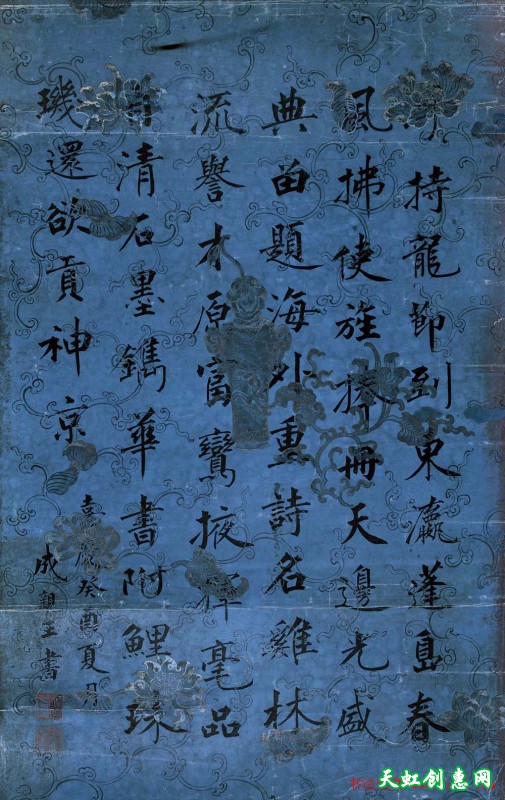 持龍節到東瀛蓬島春
風拂使旌捧冊天邊光盛
典留題海外重詩名雞林
流譽才原富鸞掖揮毫品
自清石墨鐫華書附鯉珠
璣還欲貢神京
嘉慶癸酉夏月
成親王書
天虹创惠网